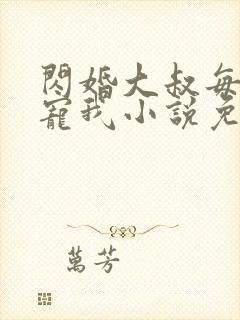 閃婚大叔每
寵我小說免
萬芳